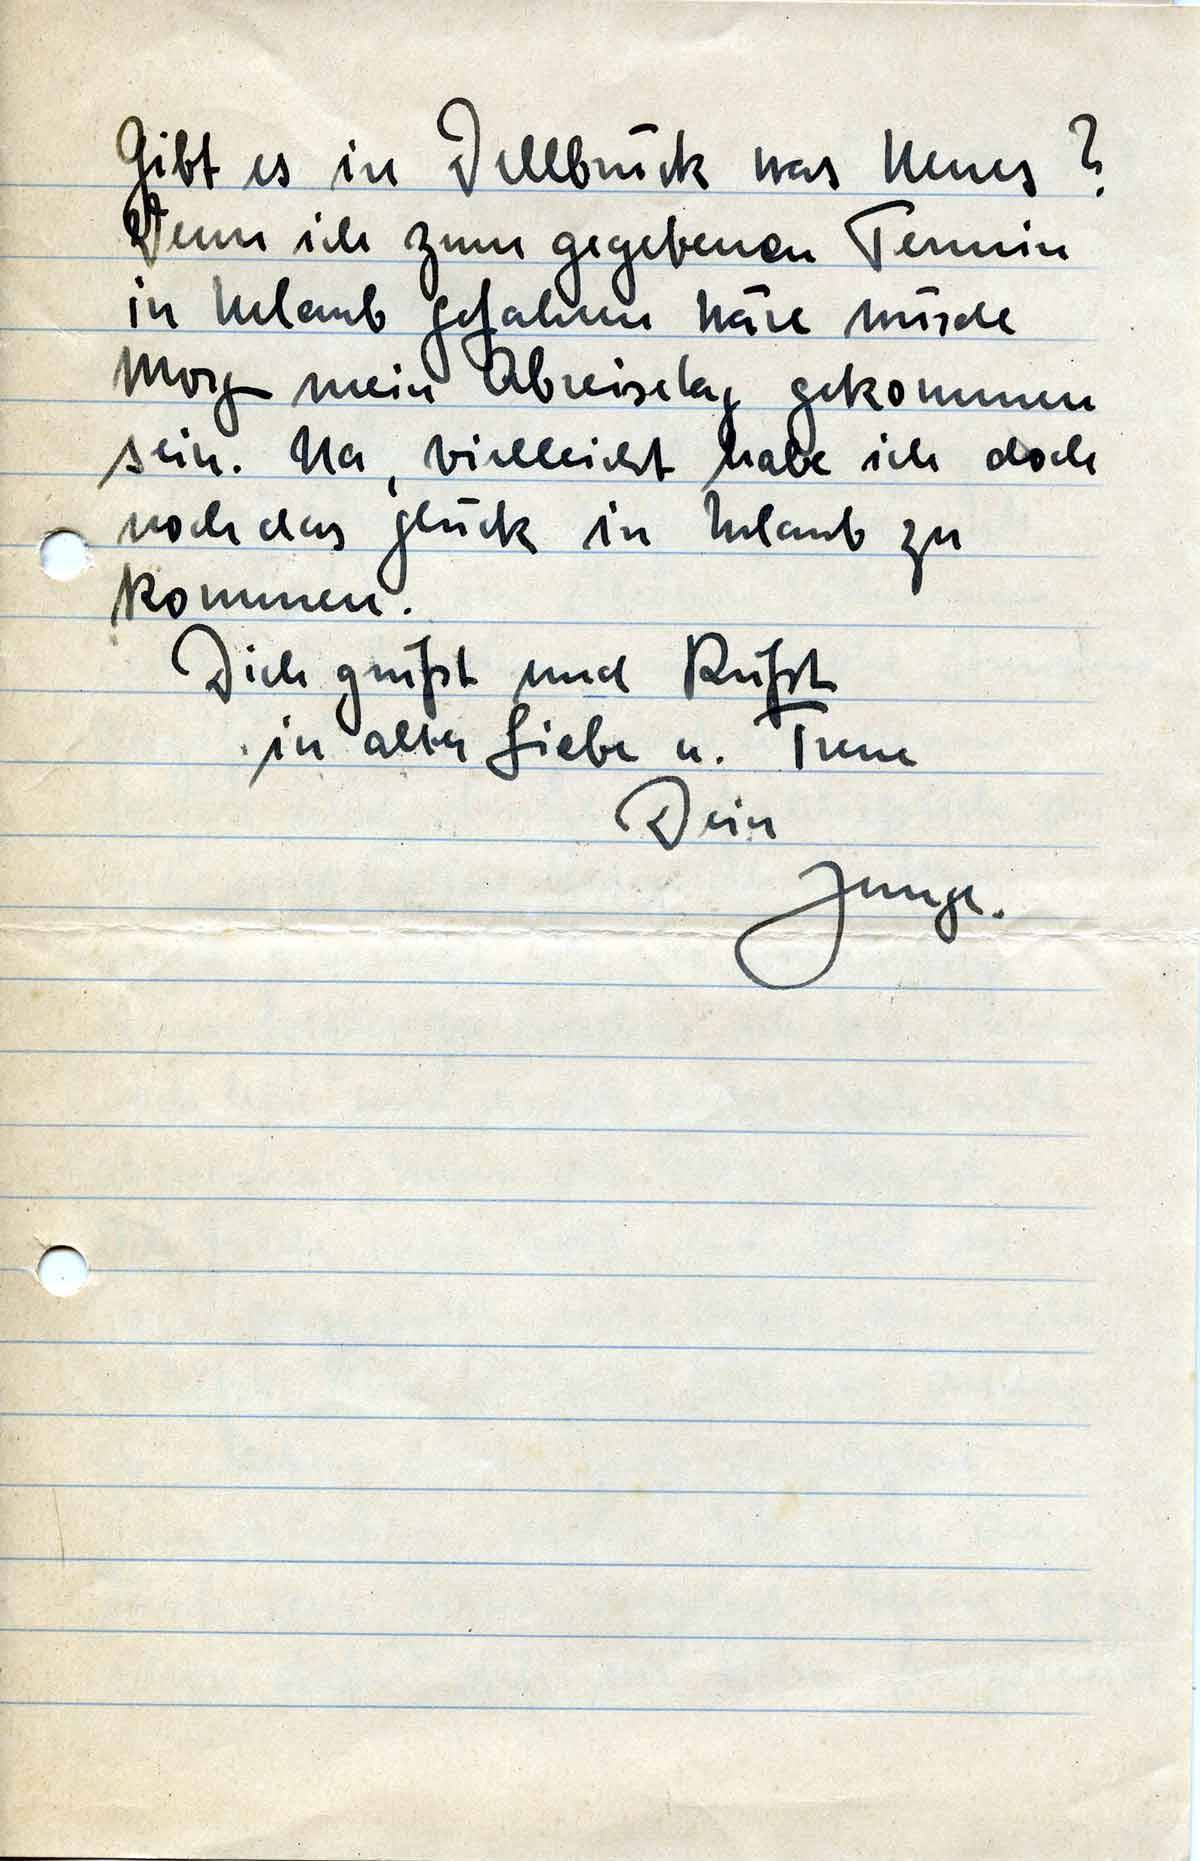 Gibt es in Dellbrück was Neues?
Wenn ich zum gegebenen Termin
in Urlaub gefahren wäre würde
Morg mein Abreisetag gekommen
sein. Na, vielleicht habe ich doch
noch das glück in Urlaub zu
kommen.
Dich grüßt und Küßt
in alter Liebe u. Treue
Dein
Junge.